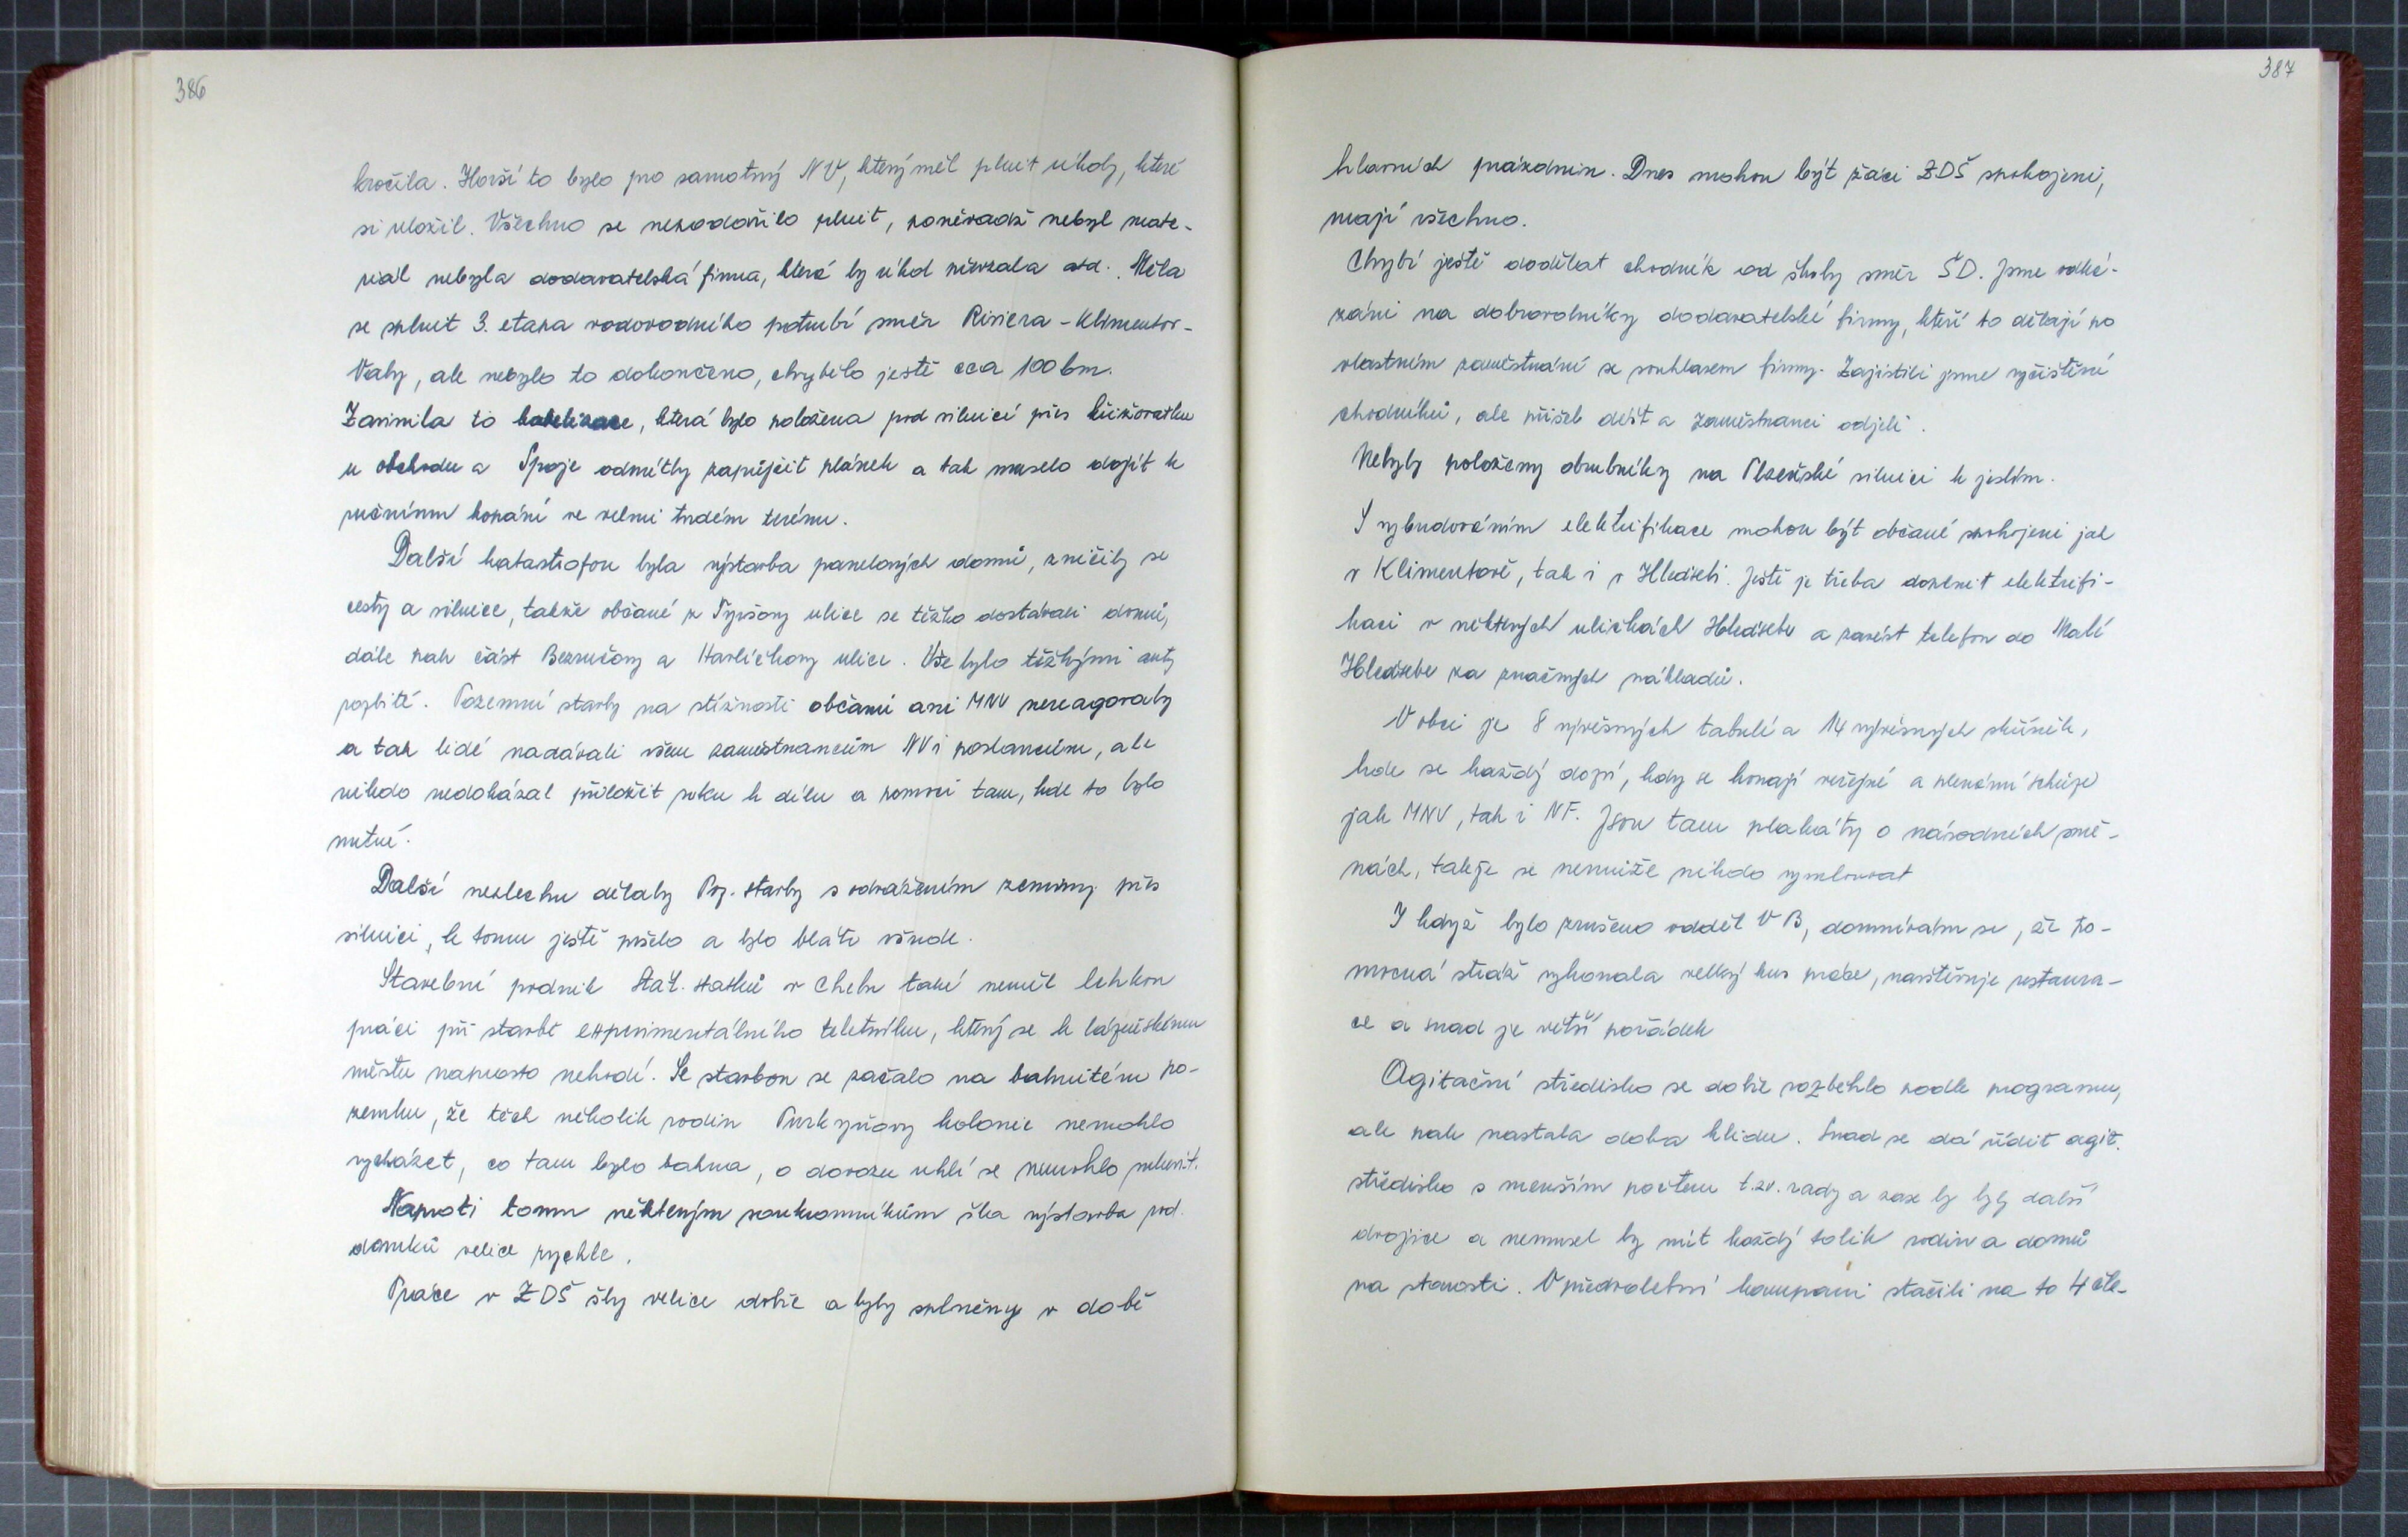 386
kročila. Horší to bylo pro samotný NV, který měl plnit úkoly, které
si uložil. Všechno se nepodařilo plnit, poněvadž nebyl mate-
riál nebyla dodavatelská firma, která by úkol převzala atd. Měla
se splnit 3. etapa vodovodního potrubí směr Riviera - Klimentov-
Valy, ale nebylo to dokončeno, chybělo ještě cca 100 bm.
Zavinila to kabelizace, která bylo položena pod silnicí přes křižovatku
u obchodu a Spoje odmítly zapůjčit plánek a tak muselo dojít k
ručnímu kopání ve velmi tvrdém terénu.
Další katastrofou byla výstavba panelových domů, zničily se
cesty a silnice, takže občané z Tyršovy ulice se těžko dostávali domů,
dále pak část Bezručovy a Havlíčkovy ulice. Vše bylo těžkými auty
rozbité. Pozemní stavby na stížnosti občanů ani MNV nereagovaly
a tak lidé nadávali všem zaměstnancům NV i poslancům, ale
nikdo nedokázal přiložit ruku k dílu a pomoci tam, kde to bylo
nutné.
Další neplechu dělaly Poz. stavby s odvážením zeminy přes
silnici, k tomu ještě pršelo a bylo bláto všude.
Stavební podnik Stát. statků v Chebu také neměl lehkou
práci při stavbě experimentálního teletníku, který se k lázeňskému
městu naprosto nehodí. Se stavbou se začalo na bahnitém po-
zemku, že těch několik rodin Purkyňovy kolonie nemohlo
vycházet, co tam bylo bahna, o dovozu uhlí se nemohlo mluvit.
Naproti tomu některým soukromníkům šla výstavba rod.
domků velice rychle.
Práce v ZDŠ šly velice dobře a byly splněny v době
387
hlavních prázdnin. Dnes mohou být žáci ZDŠ spokojeni,
mají všechno.
Chybí ještě dodělat chodník od školy směr ŠD. Jsme odká-
záni na dobrovolníky dodavatelské firmy, kteří to dělají po
vlastním zaměstnání se souhlasem firmy. Zajistili jsme vyčištění
chodníků, ale přišel déšť a zaměstnanci odjeli.
Nebyly položeny obrubníky na Plzeňské silnici k jeslím.
S vybudováním elektrifikace mohou být občané spokojeni jak
v Klimentově, tak i v Hleďsebi. Ještě je třeba doplnit elektrifi-
kaci v některých uličkách Hleďsebe a zavést telefon do Malé
Hleďsebe za značných nákladů.
V obci je 8 vývěsných tabulí a 14 vývěsných skříněk,
kde se každý dozví, kdy se konají veřejné a plenární schůze
jak MNV, tak i NF. Jsou tam plakáty o národních smě-
nách, takže se nemůže nikdo vymlouvat
I když bylo zrušeno odděl VB, domnívám se, že po-
mocná stráž vykonala velký kus práce, navštěvuje restaura-
ce a snad je větší pořádek
Agitační středisko se dobře rozběhlo podle programu,
ale pak nastala doba klidu. Snad se dá řídit agit.
středisko s menším počtem t.zv. rady a zase by byly další
dvojice a nemusel by mít každý tolik rodin a domů
na starosti. V předvolební kampani stačili na to 4 čle-